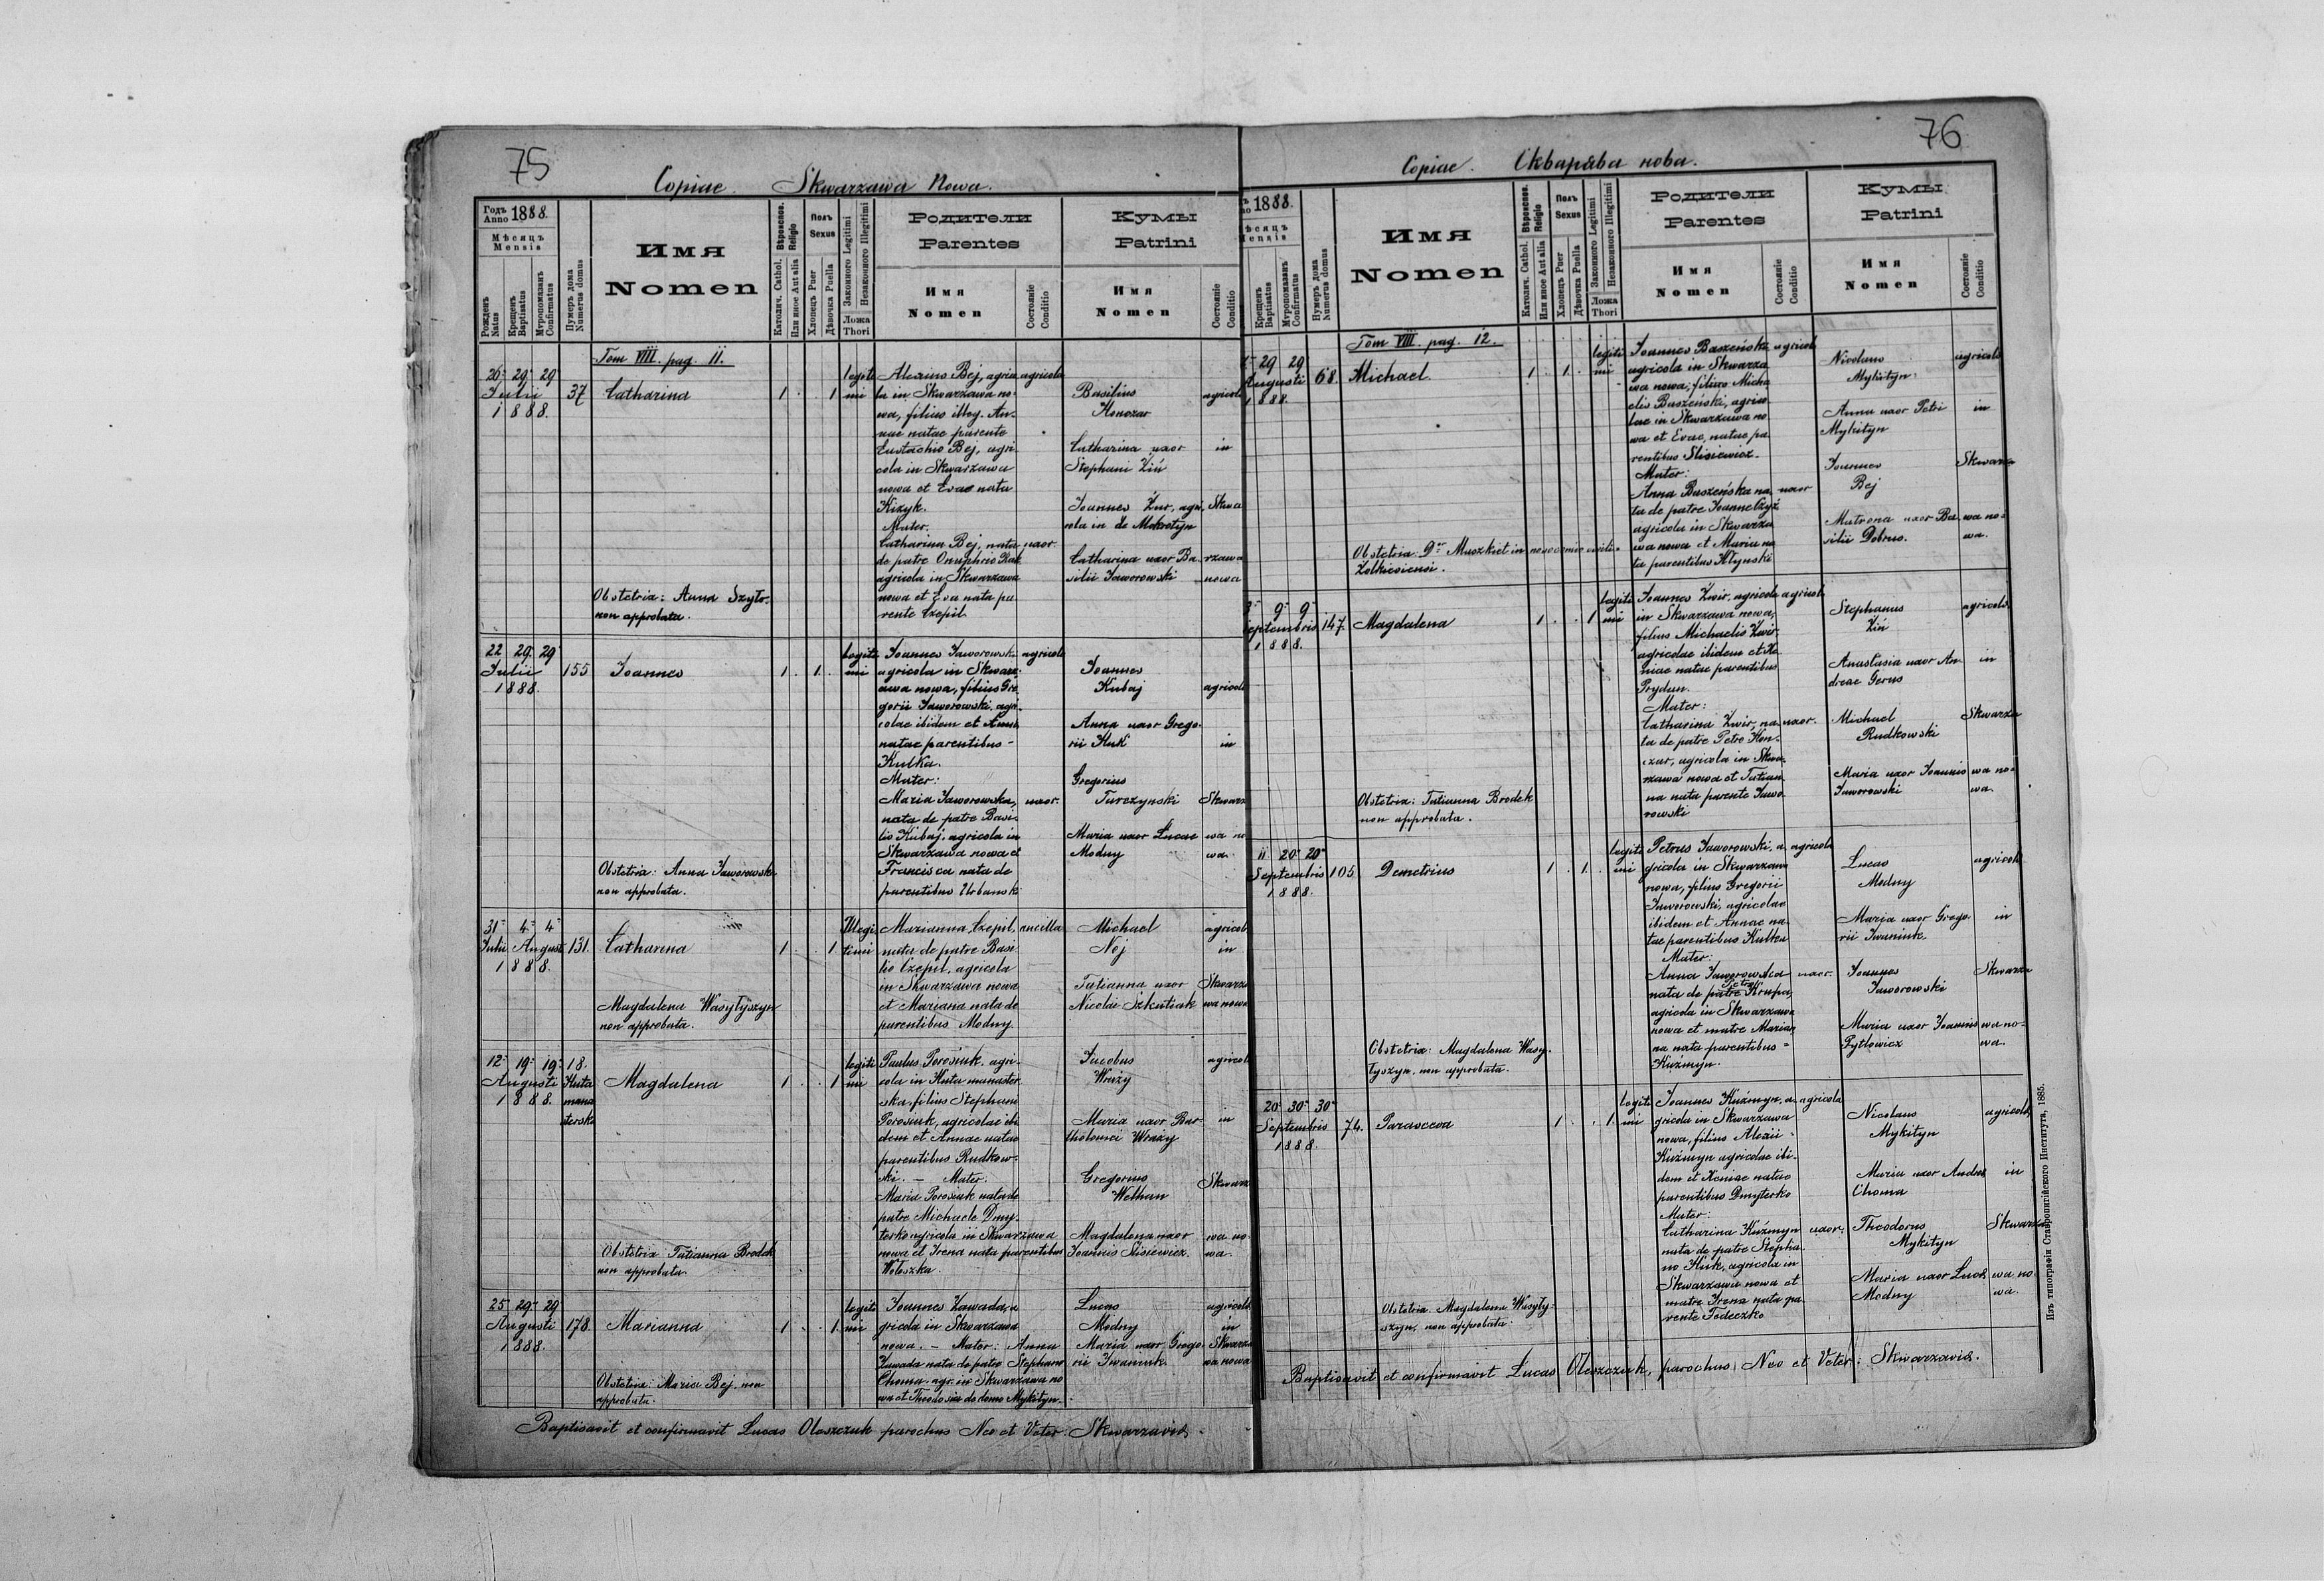 75
Copiae. Skwarzawa Nowa.
Годъ Anno 1888.
Мѣсяцъ
Mensis
Рожденъ Natus
Крещенъ Baptisatus
Мvропомазанъ Confirmatus
Нумеръ дома Numerus domus
Имя
Nomen
Вѣроиспов. Religio
Католич. Cathol.
Или иное Aut alia
Полъ
Sexus
Хлопецъ Puer
Дѣвочка Puella
Законного Legitimi
Незаконного Illegitimi
Ложа
Thori
Родители
Parentes
Имя
Nomen
Состояніе
Conditio
Кумы
Patrini
Имя
Nomen
Состояніе
Conditio
Tom VIII. pag. II.
26 29 29
Julii
1888.
37
Catharina
1 . . 1
legiti
mi
Alexius Bej, agrico
la in Skwarzawa no-
wa, filius illeg. An-
nae natae parente
Eustachio Bej, agri-
cola in Skwarzawa
nowa et Evae nata
Kizyk.
Mater.
Catharina Bej, nata
de patre Onuphrio
agricola in Skwarzawa
nowa et Eva nata pa
rente Czepil.
agricola
uxor
Basilius
Konczar
Catharina uxor
Stephani Ziń
Joannes Zur, agri-
cola in de Mokrotyn
Catharina uxor Ba-
silii Jaworowski
agricola
in
Skwa
rzawa
nowa
Obstetrix: Anna Szyło-
non approbata.
22 29 29
Julii
1888.
155
Joannes
1 . 1 .
legiti
mi
Joannes Jaworowski
agricola in Skwarz
awa nowa, filius Gre
gorii Jaworowski, agri-
colae ibidem et Annae
natae parentibus -
Kulka.
Mater:
Maria Jaworowska,
nata de patre Basi-
lio Kubaj, agricola in
Skwarzawa nowa et
Francisca nata de
parentibus Urbanski
agricola
uxor.
Joannes
Kubaj
Anna uxor Grego-
rii Kuk
Gregorius
Turczynski
Maria uxor Lucae
Modny
agricola
in
Skwarza
wa no
wa.
Obstetrix: Anna Jaworowska
non approbata.
31 4 4
Julii August
1888.
131.
Catharina
1 . . 1
Illegi
timi
Marianna Czepil,
nata de patre Basi
lio Czepil, agricola
in Skwarzawa nowa
et Mariana nata de
parentibus Modny.
ancilla
Michael
Nej
Tatianna uxor
Nicolai Szkutiak
agricol
in
Skwarza
wa nowa
Magdalena Wasyłyszyn
non approbata.
12 19 19
Augusti
1888.
18.
Huta
mona
sterska
Magdalena
1 . . 1
legiti
mi
Paulus Porosiuk, agri-
cola in Huta monaster
ska, filius Stephani
Porosiuk, agricolae ibi
dem et Annae natae
parentibus Rudkow-
ski. - Mater.
Maria Porosiuk nata de
patre Michaele Dmy-
terko agricola in Skwarzawa
nowa et Irena nata parentibus
Wołoszka.
Jacobus
Wraży
Maria uxor Bar-
tholomei Wraży
Gregorius
Welhan
Magdalena uxor
Joannis Slisiewicz.
agricola
in
Skwarz
wa no-
wa.
Obstetrix Tatianna Brodek
non approbata.
25 29 29
Augusti
1888.
178.
Marianna
1 . . 1
legiti
mi
Joannes Zawada, a
gricola in Skwarzawa
nowa. - Mater: Anna
Zawada nata de patre Stephano
Choma, agr. in Skwarzawa no
wa et Theodosia de domo Mykityn.
Lucas
Modny
Maria uxor Grego-
rii Iwaniuk
agricola
in
Skwarza
wa nowa
Obstetrix: Maria Bej, non
approbata.
Baptisavit et confirmavit Lucas Oleszczuk parochus Neo et Veter: Skwarzavid.
76
Copiae. Скварява нова.
1888.
Крещенъ Baptisatus
Мvропомазанъ Confirmatus
Нумеръ дома Numerus domus
Имя
Nomen
Вѣроиспов. Religio
Католич. Cathol.
Или иное Aut alia
Полъ
Sexus
Хлопецъ Puer
Дѣвочка Puella
Законного Legitimi
Незаконного Illegitimi
Ложа
Thori
Родители
Parentes
Имя
Nomen
Состояніе
Conditio
Кумы
Patrini
Имя
Nomen
Состояніе
Conditio
Tom VIII. pag. 12.
29 29
Augusti
1888.
68.
Michael.
1 . 1 .
legiti
mi
Joannes Baszeński,
agricola in Skwarza
wa nowa, filius Micha
elis Baszeński, agrico
lae in Skwarzawa no-
wa et Evae, natae pa
rentibus Slisiewicz.
Mater:
Anna Baszeńska na
ta de patre Joanne Czyż
agricola in Skwarza
wa nowa et Maria na
ta parentibus Hłynski
agricola
uxor
Nicolaus
Mykityn
Anna uxor Petri
Mykityn
Joannes
Bej
Matrona uxor Ba-
silii Dobrus.
agricola
in
Skwarza
wa no-
wa.
Obstetrix: Dr Muszkiet in nosocomio civili-
Zolkiewiensi.
9 9
Septembris
1888.
147.
Magdalena
1 . . 1
legiti
mi
Joannes Zwir, agricola
in Skwarzawa nowa,
filius Michaelis Zwir
agricolae ibidem et Xe
niae natae parentibus
Prydun.
Mater:
Catharina Zwir, na
ta de patre Petro Kon-
czar, agricola in Skwa-
rzawa nowa et Tatian
na nata parente Jawo
rowski
agricola
uxor.
Stephanus
Ziń
Anastasia uxor An-
dreae Gerus
Michael
Rudkowski
Maria uxor Joannis
Jaworowski
agricola
in
Skwarza
wa no-
wa.
Obstetrix: Tatianna Brodek
non approbata.
11 20 20
Septembris
1888.
105.
Demetrius
1 . 1 .
legiti
mi
Petrus Jaworowski, a
gricola in Skwarzawa
nowa, filius Gregorii
Jaworowski, agricolae
ibidem et Annae na-
tae parentibus Kulka
Mater:
Anna Jaworowska
nata de patre Petro Krupa,
agricola in Skwarzawa
nowa et matre Marian
na nata parentibus -
Kuźmyn.
agricola
uxor.
Lucas
Modny
Maria uxor Grego-
rii Iwaniuk
Joannes
Jaworowski
Maria uxor Joannis
Pytlowicz
agricola
in
Skwarza
wa no-
wa.
Obstetrix: Magdalena Wasy-
łyszyn, non approbata.
20 30 30
Septembris
1888.
74.
Parasceva
1 . . 1
legiti
mi
Joannes Kuźmyn, a
gricola in Skwarzawa
nowa, filius Alexii -
Kuźmyn agricolae ibi-
dem et Xeniae natae
parentibus Dmyterko
Mater:
Catharina Kuźmyn
nata de patre Stepha-
no Kuk, agricola in
Skwarzawa nowa et
matre Irena nata pa-
rente Fedeczko
agricola
uxor.
Nicolaus
Mykityn
Maria uxor Andreae
Choma
Theodorus
Mykityn
Maria uxor Lucae
Modny
agricola
in
Skwarza
wa no-
wa.
Obstetrix. Magdalena Wasyły-
szyn, non approbata.
Baptisavit et confirmavit Lucas Oleszczuk, parochus Neo et Veter: Skwarzavid.
Изъ типографіи Ставропигійского Института, 1885.